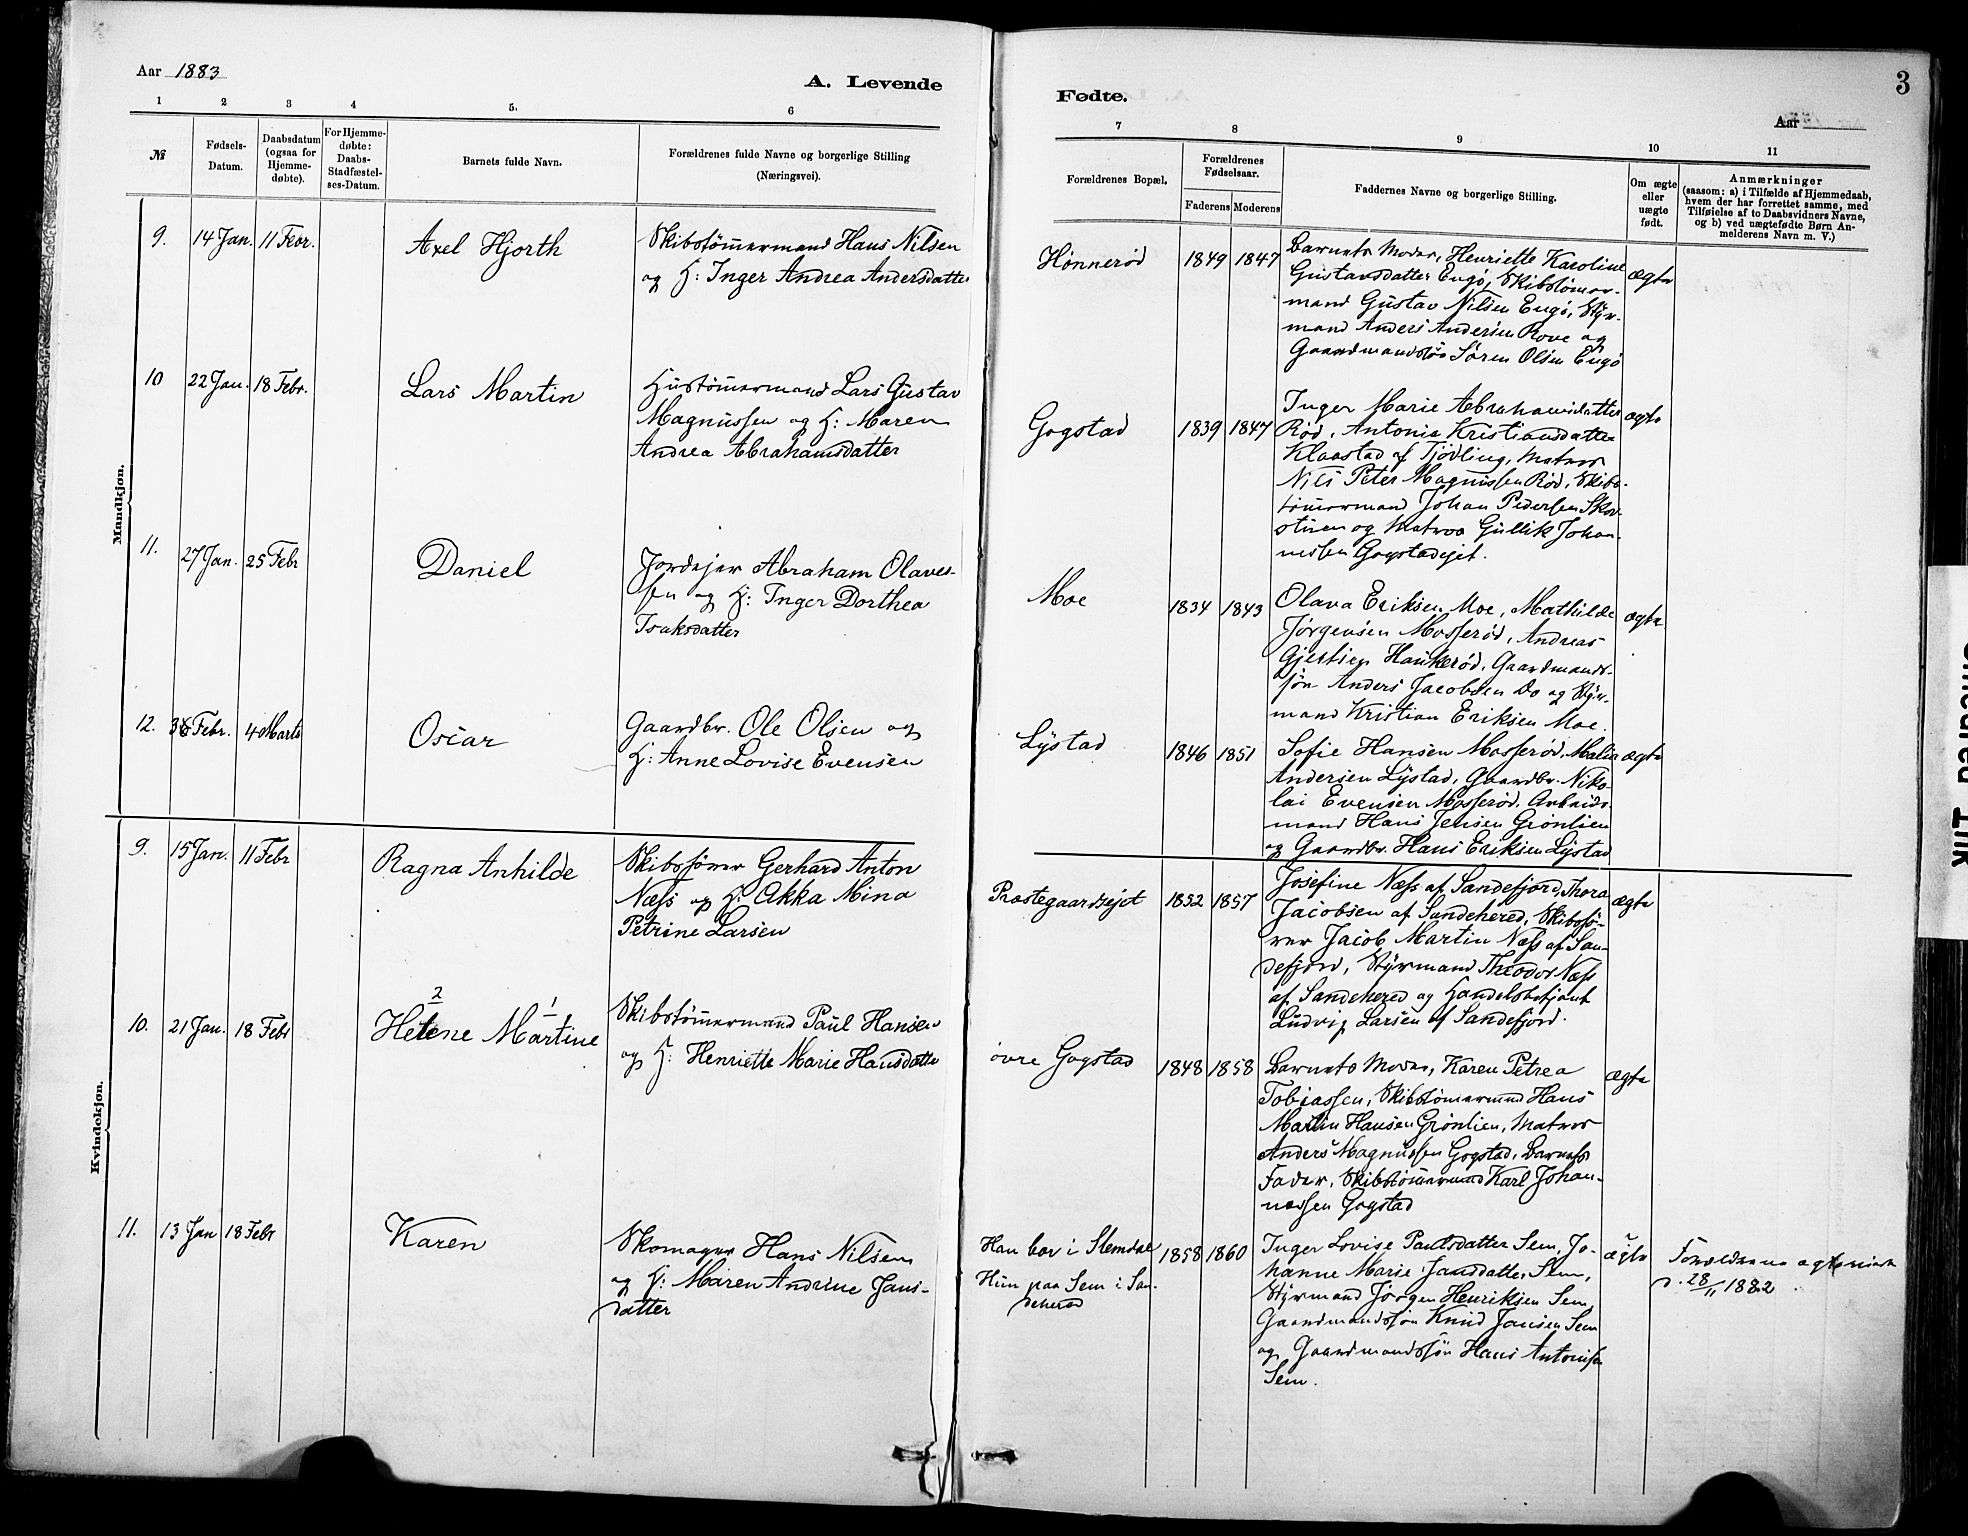 Aar 1883
A. Levende
1 2 3 4 5. 6
№ Fødsels-Datum. Daabsdatum (ogsaa for Hjemme-døbte). For Hjemme-døbte: Daabs-Stadfæstel-ses-Datum. Barnets fulde Navn. Forældrenes fulde Navne og borgerlige Stilling (Næringsvei).
Mandkjøn.
9. 14 Jan. 11 Febr. Axel Hjorth Skibstömmermand Hans Nilsen
og H: Inger Andrea Andersdatter
10 22 Jan. 18 Febr. Lars Martin Hustömmermand Lars Gustav
Magnussen og H: Maren
Andrea Abrahamsdatter
11. 27 Jan. 25 Febr Daniel Jordejer Abraham Olaves-
sen og H: Inger Dorthea
Isaksdatter
12. Febr. 4 Marts Oscar Gaardbr. Ole Olsen og
H: Anne Lovise Evensen
Kvindekjøn.
9. 15 Jan. 11 Febr Ragna Anhilde Skibsförer Gerhard Anton
Næss og H: Akka Mina
Petrine Larsen
10. 21 Jan. 18 Febr 2 1
Helene Martine Skibstömmermand Paul Hansen
og H: Henriette Marie Hansdatter
11. 13 Jan 18 Febr Karen Skomager Hans Nilsen
og H: Maren Andrine Jans-
datter
Fødte.
3
Aar
7 8 9 10 11
Forældrenes Bopæl. Forældrenes Fødselsaar. Faderens Moderens Faddernes Navne og borgerlige Stilling. Om ægte eller uægte født. Anmærkninger
(saasom: a) i Tilfælde af Hjemmedaab,
hvem der har forrettet samme, med
Tilføielse af to Daabsvidners Navne,
og b) ved uægtefødte Børn An-
melderens Navn m. V.)
Hönnerød 1849 1847 Barnets Moder, Henriette Karoline ægte
Gustavsdatter Engö, Skibstömer-
mand Gustav Nilsen Engö, Styr-
mand Anders Andersen Rove og
Gaardmandssön Søren Olsen Engö
Gogstad 1839 1847 Inger Marie Abrahamsdatter ægte
Rød, Antonie Kristiansdatter
Klaastad af Tjödling, Matros
Nils Peter Magnussen Rød, Skibs-
tömmermand Johan Pedersen Skov-
stuen og Matros Gullik Johan-
nessen Gogstadejet.
Moe 1834 1843 Olava Eriksen Moe, Mathilde ægte
Jørgensen Mosserød, Andreas
Gjertsen Haukerød, Gaardmands-
søn Anders Jacobsen Do og Styr-
mand Kristian Eriksen Moe.
Lystad 1846 1851 Sofie Hansen Mosserød, Malia ægte
Andersen Lystad, Gaardbr. Niko-
lai Evensen Mosserød, Arbeids-
mand Hans Jensen Grönlien
og Gaardbr. Hans Eriksen Lystad
Præstegaardsejet 1852 1857 Josefine Næss af Sandefjord, Thora ægte
Jacobsen af Sandehered, Skibsfö-
rer Jacob Martin Næss af San-
defjord, Styrmand Theodor Næss
af Sandehered og Handelsbetjent
Ludvig Larsen af Sandefjord.
övre Gogstad 1848 1858 Barnets Moder, Karen Petrea ægte
Tobiassen, Skibstömmermand Hans
Martin Hansen Grönlien, Matros
Anders Magnussen Gogstad, Barnets
Fader, Skibstömmermand Karl Johan-
nessen Gogstad
Han bor i Slemdal 1858 1860 Inger Lovise Paulsdatter Sem, Jo- ægte Forældrene ægteviet
Hun paa Sem i San- hanne Marie Jansdatter Sem, d. 28/11 1882
dehered Styrmand Jörgen Henriksen Sem,
Gaardmandssøn Knud Jansen Sem
og Gaardmandssön Hans Antonisen
Sem.